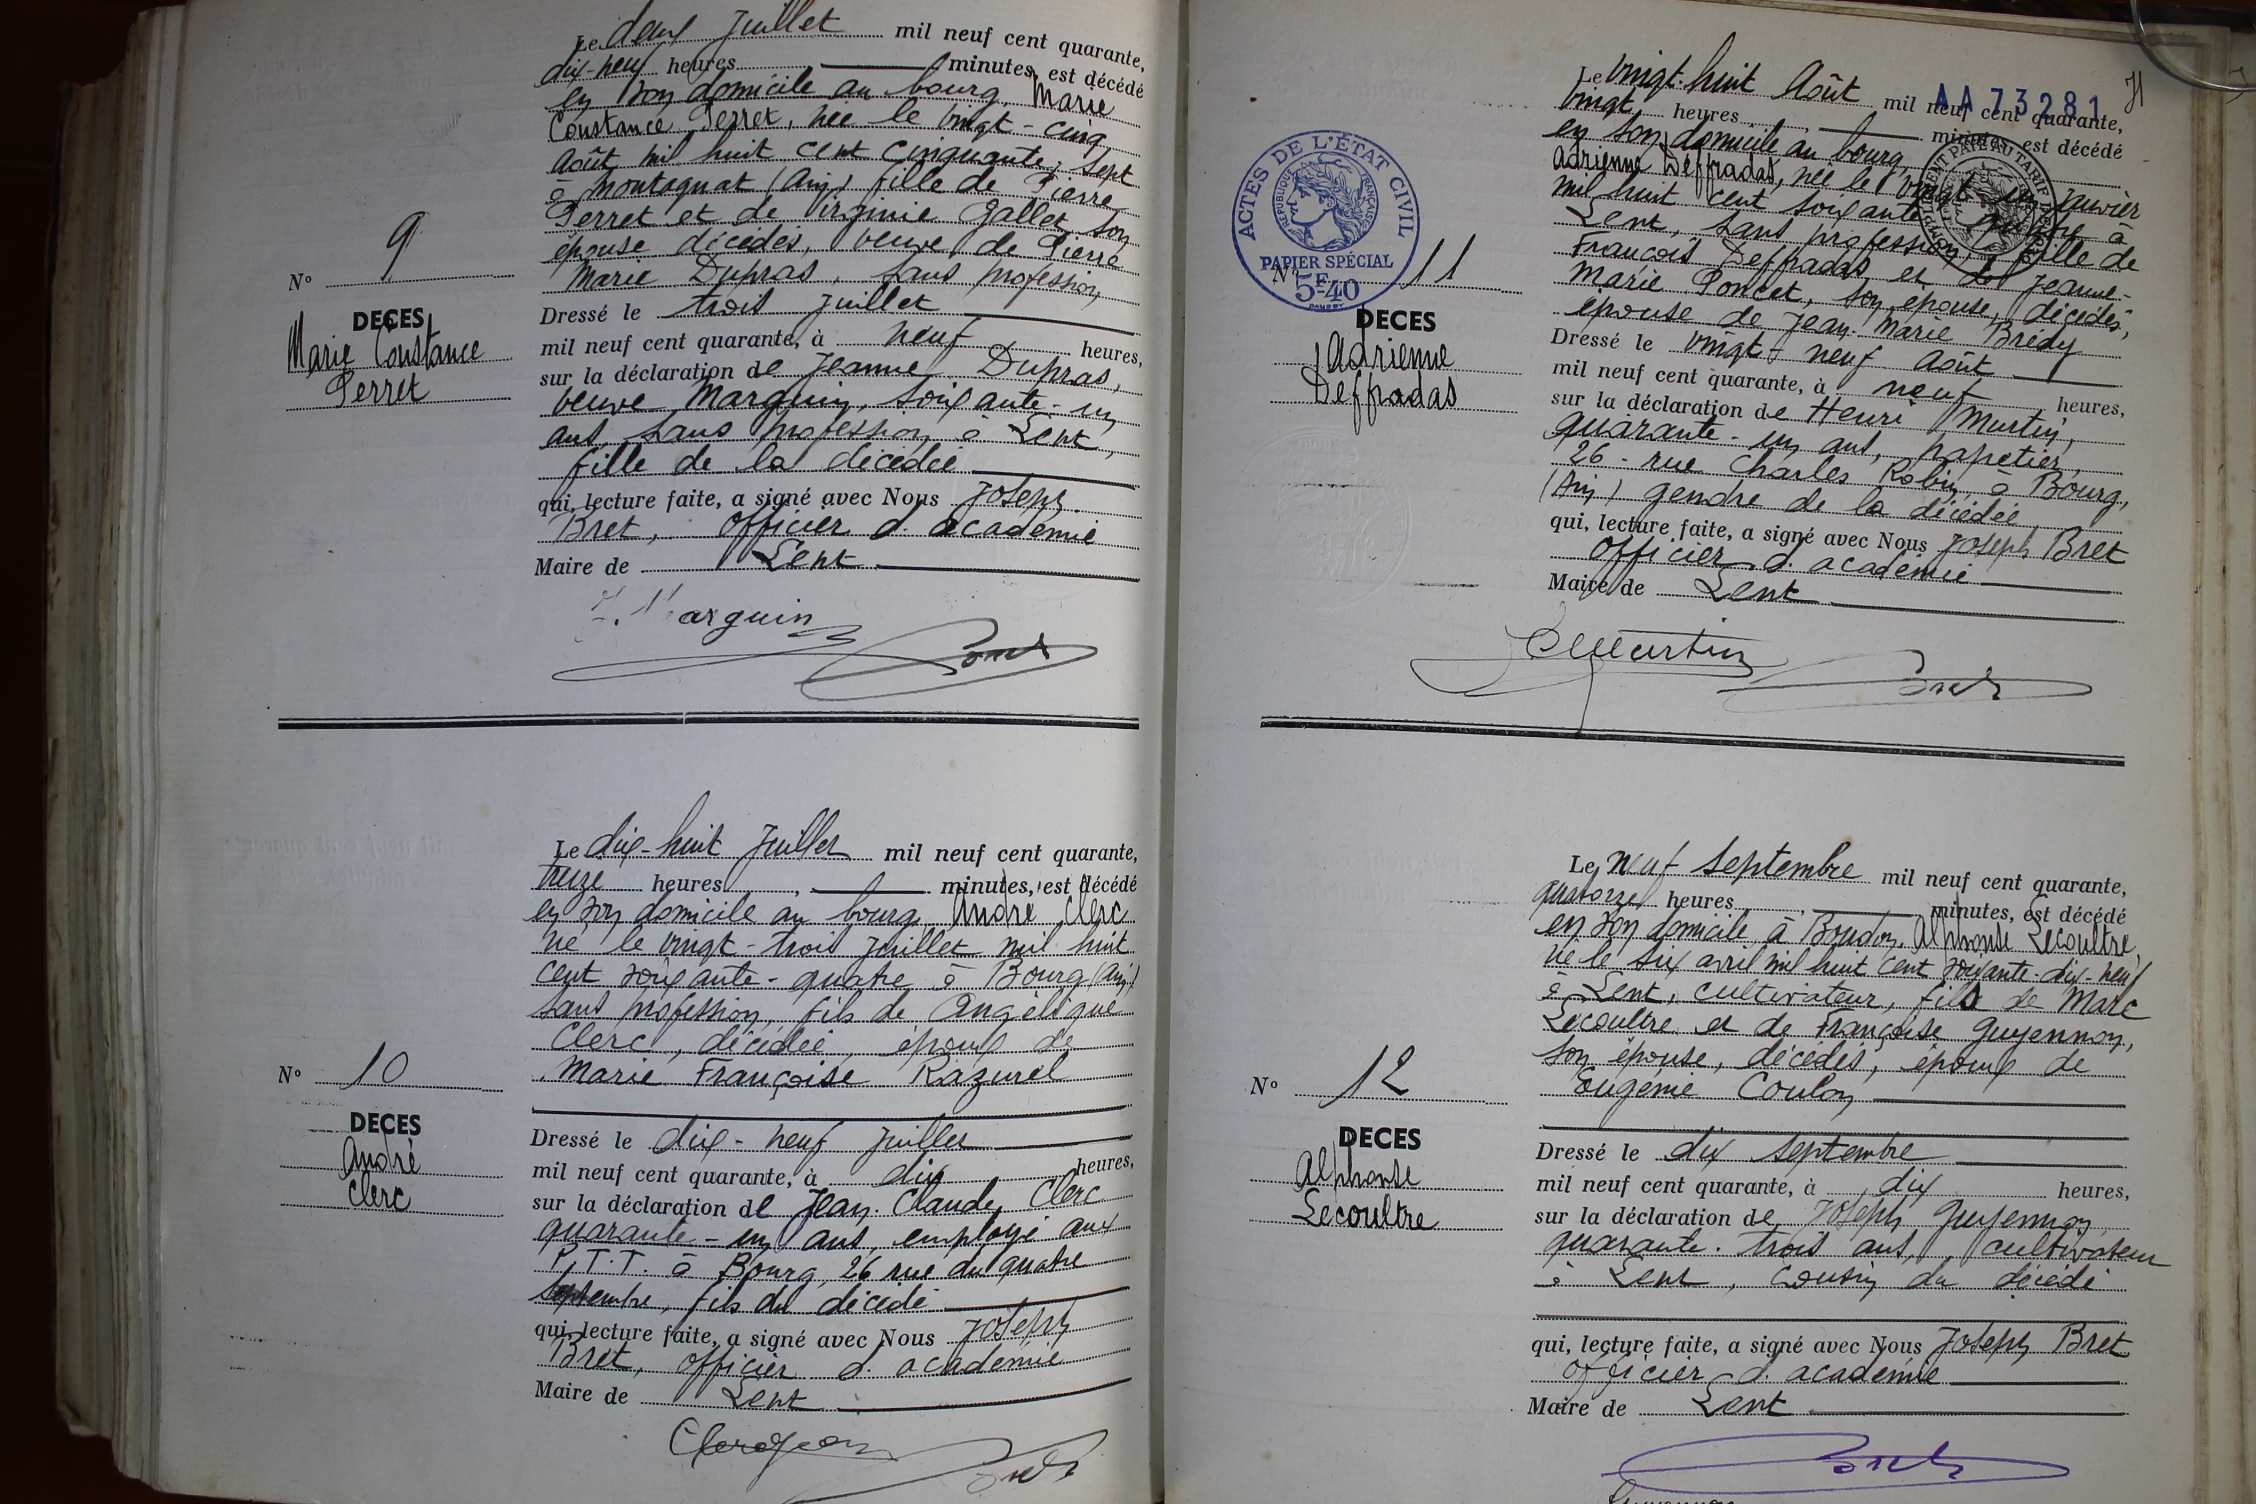 Le deux Juillet mil neuf cent quarante,
dix-neuf heures minutes, est décédé
en son domicile au bourg, Marie
Constance Perret, née le vingt-cinq
Août mil huit cent cinquante-sept
à Montagnat (Ain) fille de Pierre
Perret et de Virginie Gallet, son
épouse décédés, veuve de Pierre
Marie Dupras, sans profession
Dressé le trois Juillet
mil neuf cent quarante, à neuf heures,
sur la déclaration de Jeanne Dupras,
veuve Marguin, soixante-un
ans, sans profession à Lent,
fille de la décédée
qui, lecture faite, a signé avec Nous Joseph
Bret, officier d'académie
Maire de Lent
Marguin
Bret
N° 9
DECES
Marie Constance
Perret
Le dix-huit Juillet mil neuf cent quarante,
treize heures, minutes, est décédé
en son domicile au bourg, André Clerc
né le vingt-trois Juillet mil huit
cent soixante-quatre à Bourg (Ain)
sans profession, fils de Angélique
Clerc, décédée, époux de
Marie Françoise Razurel
Dressé le dix-neuf Juillet
mil neuf cent quarante, à dix heures,
sur la déclaration de Jean-Claude Clerc
quarante-un ans, employé aux
P.T.T. à Bourg, 26 rue du quatre
Septembre, fils du décédé
qui, lecture faite, a signé avec Nous Joseph
Bret, officier d'académie
Maire de Lent
Bret
N° 10
DECES
André
Clerc
AA 73281
Le vingt-huit Août mil neuf cent quarante,
vingt heures minutes, est décédé
en son domicile au bourg,
Adrienne Deffradas, née le vingt un Janvier
mil huit cent soixante quatre à
Lent, sans profession, fille de
François Deffradas et de Jeanne-
Marie Poncet, son épouse, décédés,
épouse de Jean-Marie Brédy
Dressé le vingt-neuf Août
mil neuf cent quarante, à neuf heures,
sur la déclaration de Henri Martin,
quarante-un ans, papetier,
26-rue Charles Robin, à Bourg,
(Ain) gendre de la décédée,
qui, lecture faite, a signé avec Nous Joseph Bret
officier d'académie
Maire de Lent
Martin
Bret
ACTES DE L'ÉTAT CIVIL
RÉPUBLIQUE FRANÇAISE
PAPIER SPÉCIAL
5F40
N° 11
DECES
Adrienne
Deffradas
Le neuf septembre mil neuf cent quarante,
quatorze heures minutes, est décédé
en son domicile à Boudon, Alphonse Lecoultre,
né le six avril mil huit cent soixante-dix-neuf
à Lent, cultivateur, fils de Marc
Lecoultre et de Françoise Guyennon,
son épouse, décédés, époux de
Eugénie Coulon
Dressé le dix septembre
mil neuf cent quarante, à dix heures,
sur la déclaration de Joseph Guyennon,
quarante-trois ans, cultivateur
à Lent, cousin du décédé
qui, lecture faite, a signé avec Nous Joseph Bret
officier d'académie
Maire de Lent
Bret
N° 12
DECES
Alphonse
Lecoultre